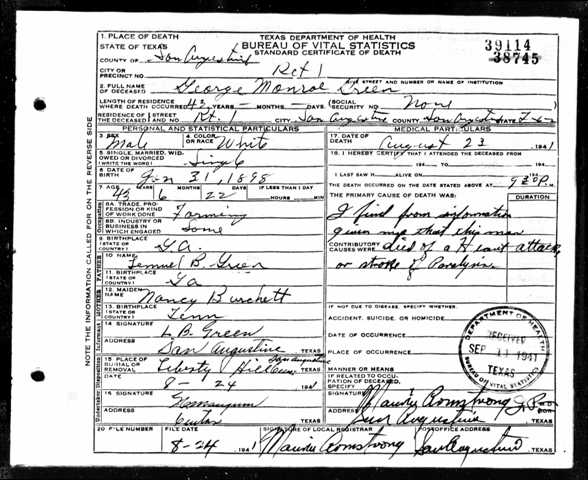 1. PLACE OF DEATH
STATE OF TEXAS
TEXAS DEPARTMENT OF HEALTH
BUREAU OF VITAL STATISTICS
STANDARD CERTIFICATE OF DEATH
39114
38745
COUNTY OF San Augustine
CITY OR PRECINCT NO. Rt 1
GIVE STREET AND NUMBER OR NAME OF INSTITUTION
2. FULL NAME OF DECEASED George Monroe Green
LENGTH OF RESIDENCE WHERE DEATH OCCURRED 43 YEARS - MONTHS - DAYS (SOCIAL SECURITY NO. None
RESIDENCE OF THE DECEASED STREET AND NO. Rt. 1 CITY San Augustine COUNTY San Augustine STATE Tex
PERSONAL AND STATISTICAL PARTICULARS
MEDICAL PARTICULARS
3. SEX Male
4. COLOR OR RACE White
17. DATE OF DEATH August 23 1941
5. SINGLE, MARRIED, WIDOWED OR DIVORCED (WRITE THE WORD) Single
18. I HEREBY CERTIFY THAT I ATTENDED THE DECEASED FROM
194 TO 194
6. DATE OF BIRTH Jan 31, 1898
I LAST SAW H ALIVE ON 194
7. AGE YEARS MONTHS DAYS IF LESS THAN 1 DAY
43 6 22 HOURS MIN
THE DEATH OCCURRED ON THE DATE STATED ABOVE AT M.
8A. TRADE, PROFESSION OR KIND OF WORK DONE Farming
THE PRIMARY CAUSE OF DEATH WAS: DURATION
8B. INDUSTRY OR BUSINESS IN WHICH ENGAGED Same
I find from information
given me that this man
9. BIRTHPLACE (STATE OR COUNTRY) Ga.
CONTRIBUTORY CAUSES WERE died of a Heart attack
or stroke of Paralysis
10. NAME Lemuel B. Green
11. BIRTHPLACE (STATE OR COUNTRY) Ga
12. MAIDEN NAME Nancy Burchett
IF NOT DUE TO DISEASE, SPECIFY WHETHER:
13. BIRTHPLACE (STATE OR COUNTRY) Tenn
ACCIDENT, SUICIDE, OR HOMICIDE
14. SIGNATURE L. B. Green
DATE OF OCCURRENCE
ADDRESS San Augustine TEXAS
PLACE OF OCCURRENCE
15. PLACE OF BURIAL OR REMOVAL Liberty Hill Cem San Augustine TEXAS
MANNER OR MEANS
DATE 8-24 1941
IF RELATED TO OCCUPATION OF DECEASED, SPECIFY
16. SIGNATURE
SIGNATURE Maurice Armstrong J.P. M.D. OR
ADDRESS Center TEXAS
ADDRESS San Augustine TEXAS
20. FILE NUMBER FILE DATE SIGNATURE OF LOCAL REGISTRAR POSTOFFICE ADDRESS
8-24 1941 Maurice Armstrong San Augustine TEXAS
DEPARTMENT OF HEALTH
RECEIVED
SEP 11 1941
TEXAS
BUREAU OF VITAL STATISTICS
NOTE THE INFORMATION CALLED FOR ON THE REVERSE SIDE
FATHER
MOTHER